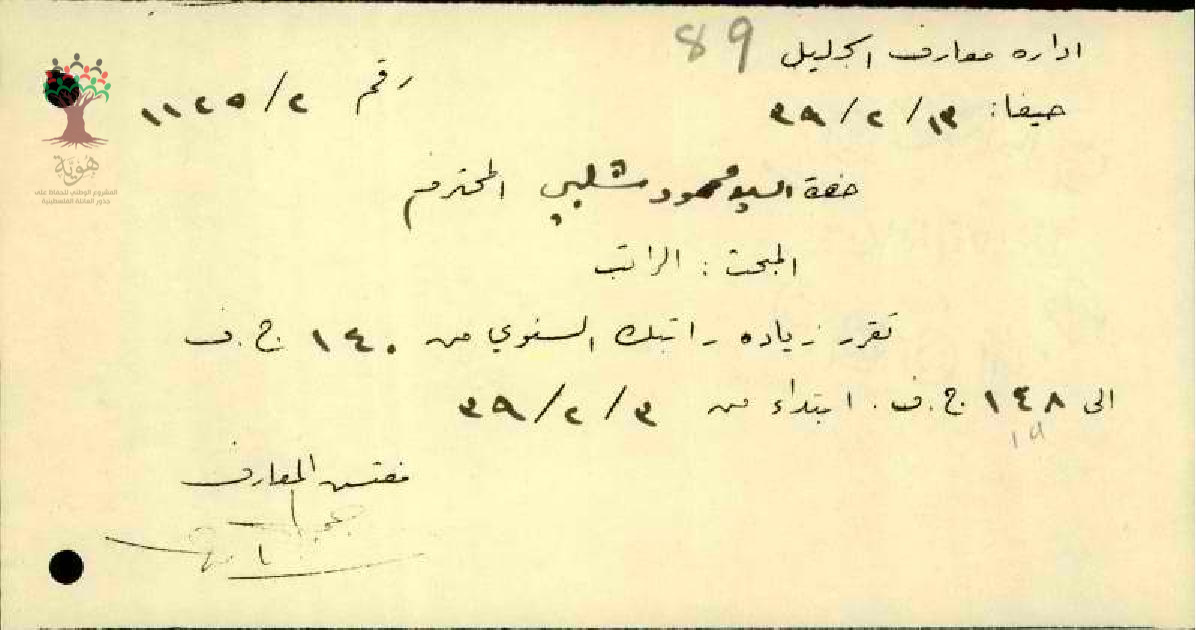 اداره معارف الجليل 89
حيفا: ١٣/٢/٣٩ رقم ١١٢٥/٢
حضرة السيد محمود شلبي المحترم
المبحث: الراتب
تقرر زياده راتبك السنوي من ١٤٠ ج.ف
الى ١٤٨ ج.ف. ابتداء من ٣/٢/٣٩
مفتش المعارف
هُوِيَّة
المشروع الوطني للحفاظ على
جذور العائلة الفلسطينية